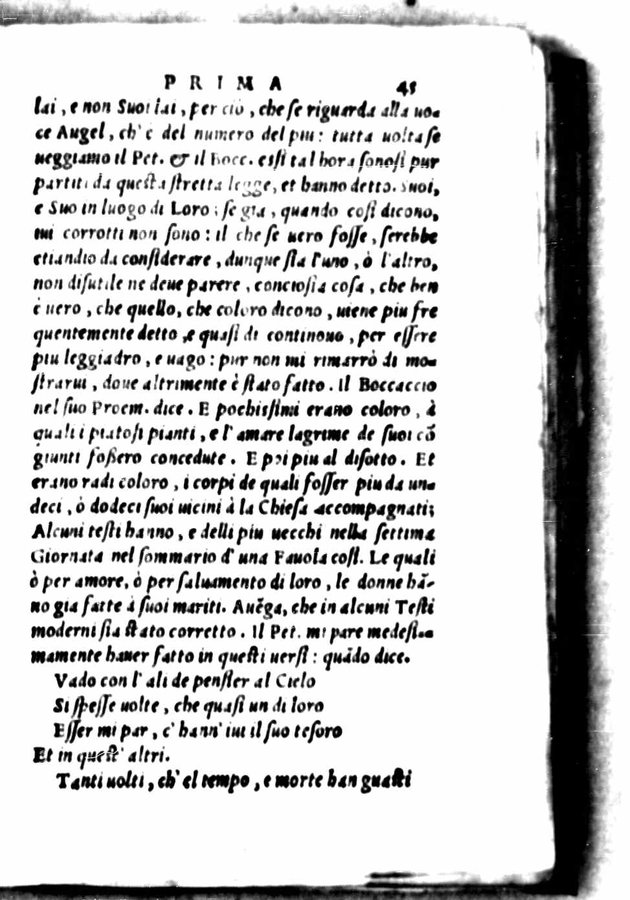 PRIMA 45
lai, e non Suoi lai, per ciò, che se riguarda alla uo-
ce Augel, ch'è del numero del piu: tutta uolta se
ueggiamo il Pet. & il Bocc. essi tal hora sonosi pur
partiti da questa stretta legge, et hanno detto. Suoi,
e Suo in luogo di Loro; se gia, quando cosi dicono,
mi corrotti non sono: il che se uero fosse, serebbe
etiandio da considerare, dunque sia l'uno, ò l'altro,
non disutile ne deue parere, conciosia cosa, che ben
è uero, che quello, che coloro dicono, uiene piu fre
quentemente detto, e quasi di continouo, per essere
piu leggiadro, e uago: pur non mi rimarrò di mo-
strarui, doue altrimente è stato fatto. Il Boccaccio
nel suo Proem. dice. E pochissimi erano coloro, à
quali i piatosi pianti, e l'amare lagrime de suoi cõ
giunti foßero concedute. E poi piu al disotto. Et
erano radi coloro, i corpi de quali fosser piu da un a
deci, ò dodeci suoi uicini à la Chiesa accompagnati;
Alcuni testi hanno, e delli piu uecchi nella settima
Giornata nel sommario d'una Fauola cosi. Le quali
ò per amore, ò per saluamento di loro, le donne hã-
no gia fatte à suoi mariti. Auẽga, che in alcuni Testi
moderni sia stato corretto. Il Pet. mi pare medesi-
mamente hauer fatto in questi uersi: quãdo dice.
Vado con l'ali de pensier al Cielo
Si spesse uolte, che quasi un di loro
Esser mi par, c'hann' iui il suo tesoro
Et in quest' altri.
Tanti uolti, ch'el tempo, e morte han guasti